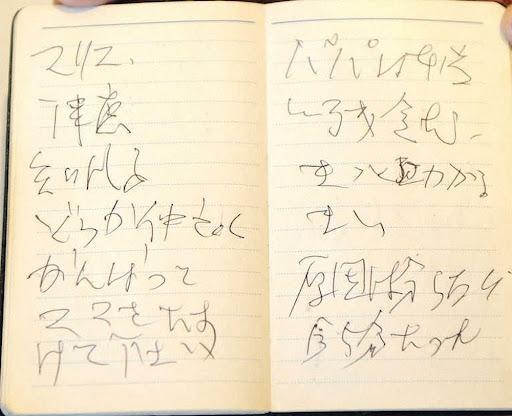 マリコ、
津慶
知代子
どうか仲良く
がんばって
ママをたす
けて下さい
パパは本当
に残念だ、
きっと助かる
まい
原因は分らない
今五分たった